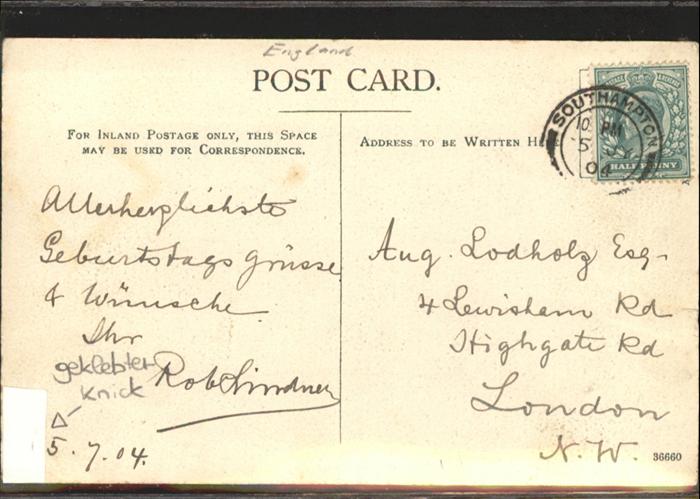 England
POST CARD.
FOR INLAND POSTAGE ONLY, THIS SPACE
MAY BE USED FOR CORRESPONDENCE.
ADDRESS TO BE WRITTEN HERE
SOUTHAMPTON
10 PM
5
04
HALFPENNY
Allerherzlichste
Geburtstags grüsse
& Wünsche
Ihr
Rob Lindner
geklebter
Knick
5.7.04.
Aug. Lodholz Esq.
4 Lewisham Rd
Highgate Rd
London
N.W.
36660